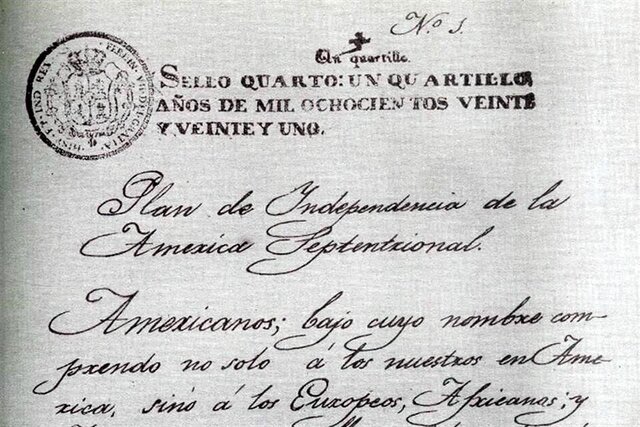 N.º 1.
Un quartillo.
SELLO QUARTO: UN QUARTILLO
AÑOS DE MIL OCHOCIENTOS VEINTE
Y VEINTE Y UNO.
HISP. ET IND. REX
Plan de Independencia de la
America Septentrional.
Americanos; bajo cuyo nombre com-
prendo no solo á los nuestros en Ame-
rica, sinó á los Europeos, Africanos; y